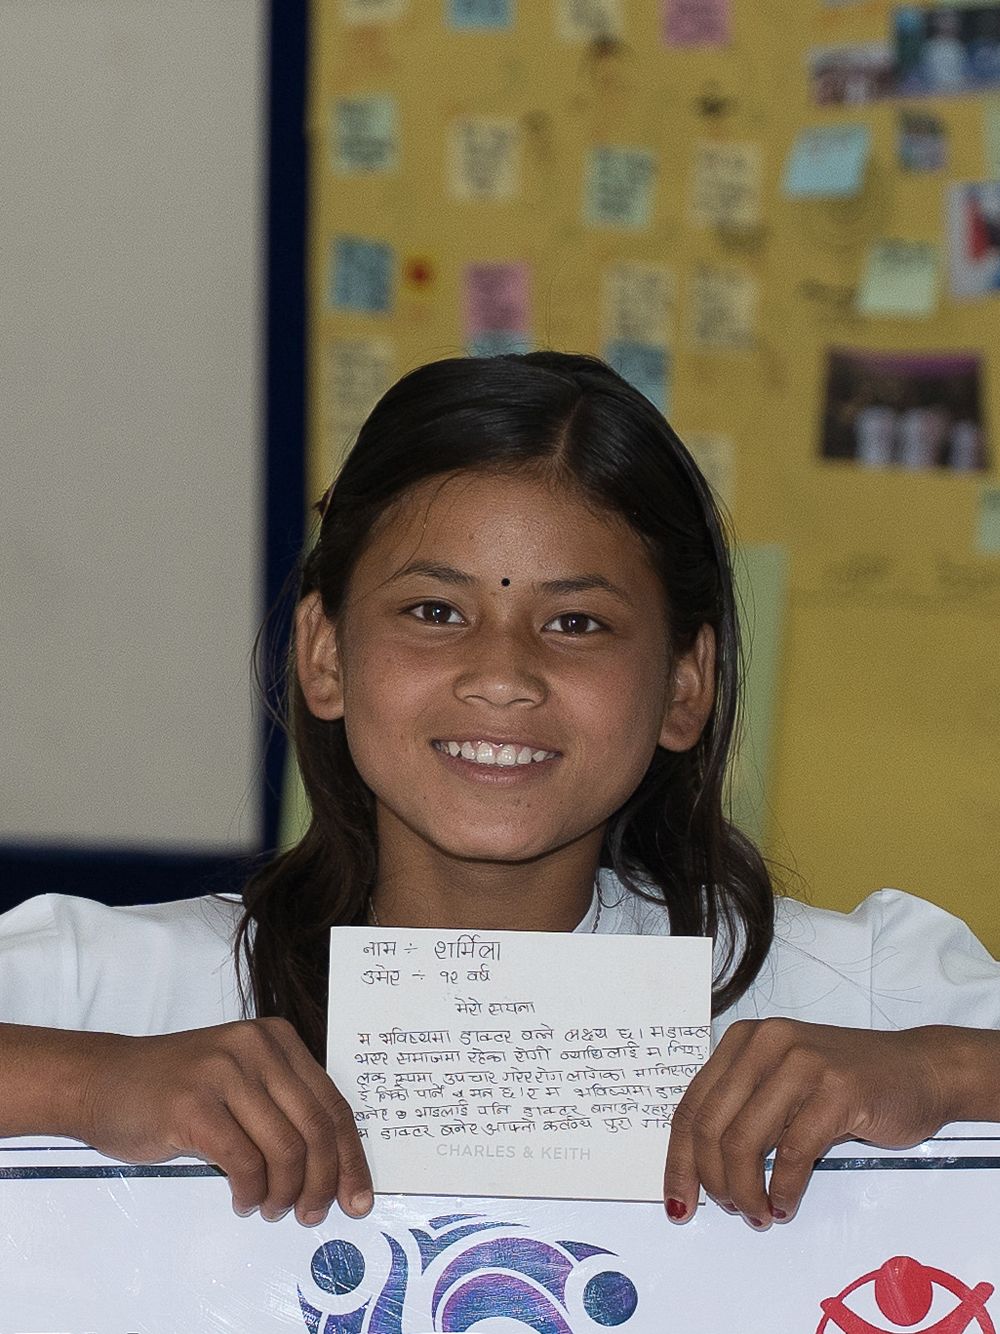 नाम ÷ शर्मिला
उमेर ÷ १२ वर्ष
मेरो सपना
म भविष्यमा डाक्टर बन्ने लक्ष्य छ। म डाक्टर
भएर समाजमा रहेका रोगी व्याधिलाई म निशु
ल्क रूपमा उपचार गरेर रोग लागेका मानिसल
ई निको पार्ने मन छ। र म भविष्यमा डाक
बनेर भाइलाई पनि डाक्टर बनाउने रहर
म डाक्टर बनेर आफ्नो कर्तव्य पुरा गर्ने
CHARLES & KEITH